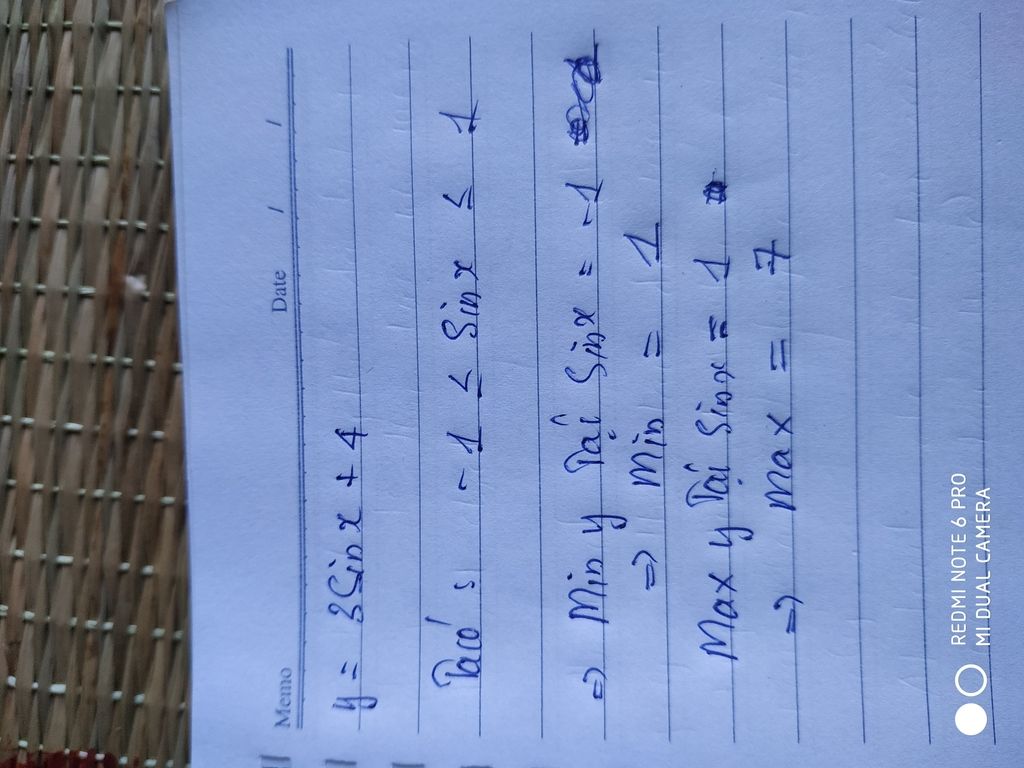 Memo
Date / /
y = 3 Sin x + 4
Ta có: -1 ≤ Sin x ≤ 1
=> Min y Tại Sin x = -1
=> Min = 1
Max y Tại Sin x = 1
=> Max = 7
REDMI NOTE 6 PRO
MI DUAL CAMERA